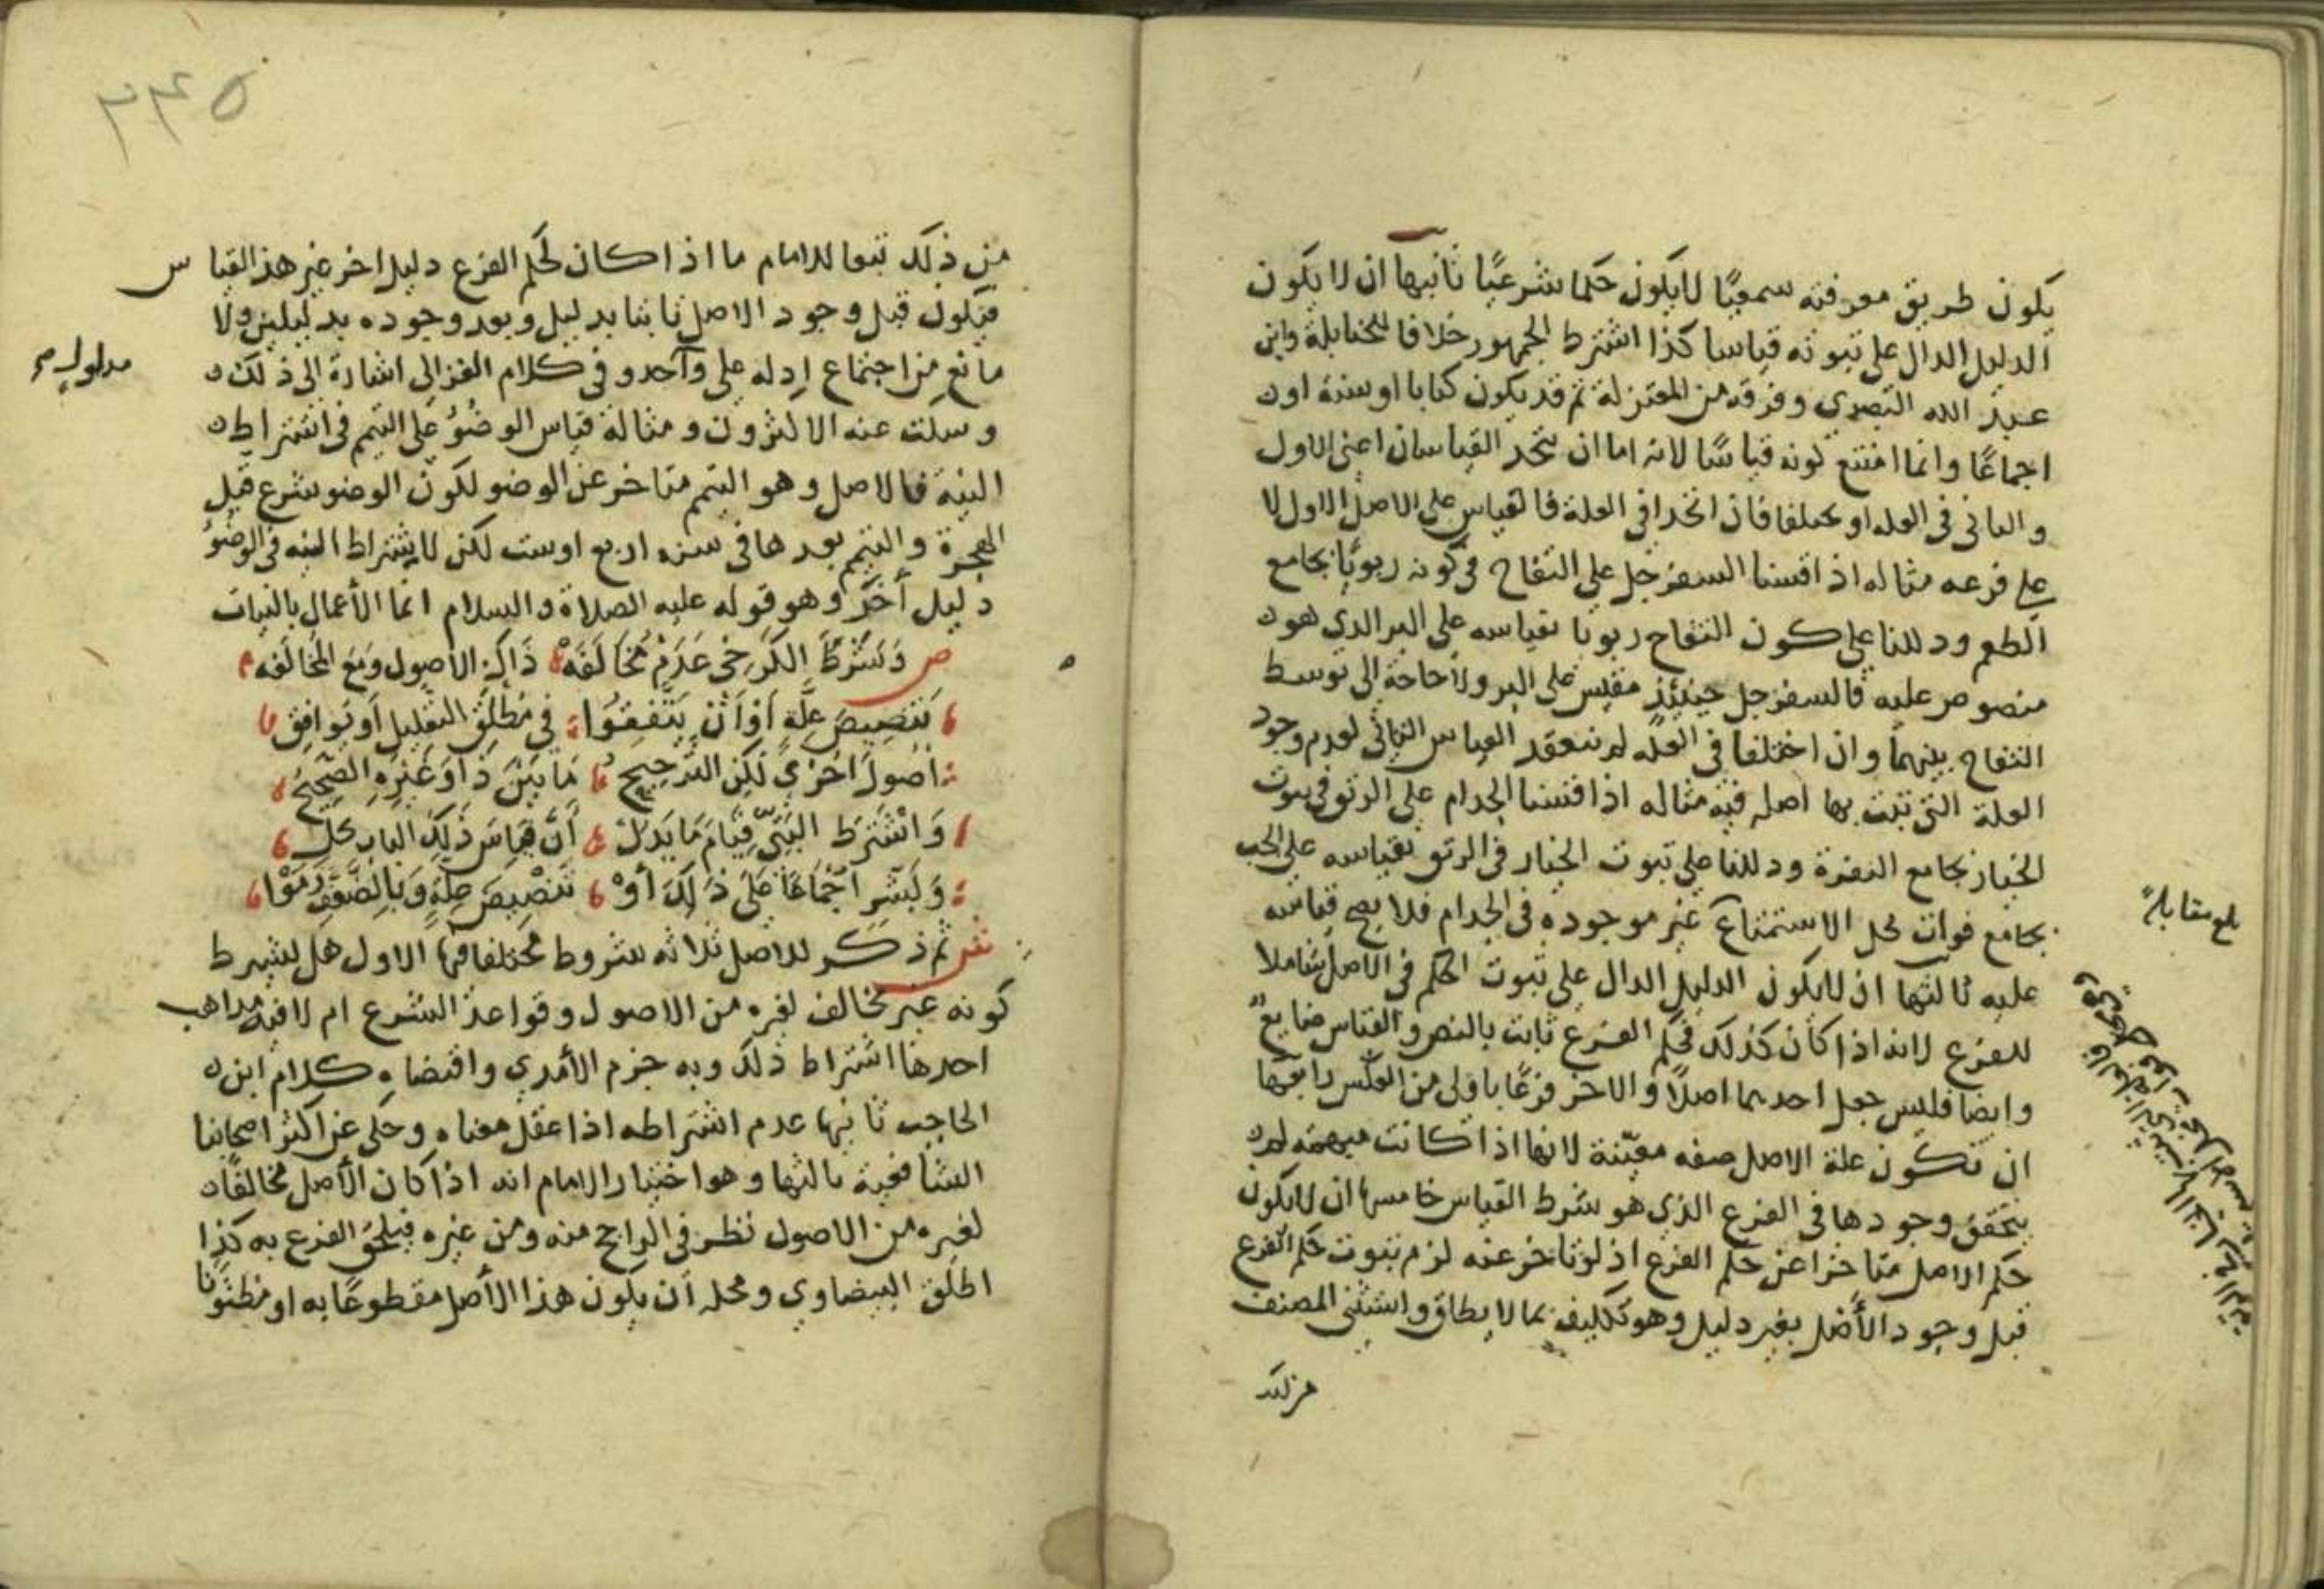 يكون طريق معرفته سمعيًا لا يكون حكما شرعيًا ثانيها ان لا يكون
الدليل الدال على ثبوته قياسا كذا اشترط الجمهور خلافا للحنابلة وابي
عبد الله البصري وفرقه من المعتزلة ثم قد يكون كتابا او سنة او
اجماعًا وانما امتنع كونه قياسًا لانه اما ان يتحد القياسان اعنى الاول
والثانى فى العله او يختلفا فان اتحدا في العلة فالقياس على الاصل الاول لا
على فرعه مثاله اذا قسنا السفرجل على التفاح في كونه ربويًا بجامع
الطعم ودللنا على كون التفاح ربويا بقياسه على البر الذي هو
منصوص عليه فالسفرجل حينئذ مقيس على البر ولا حاجة الى توسط
التفاح بينهما وان اختلفا في العله لم ينعقد القياس الثانى لعدم وجود
العلة التى تثبت بها اصله فيه مثاله اذا قسنا الجذام على الرتق في ثبوت
الخيار بجامع النفرة ودللنا على ثبوت الخيار في الرتق بقياسه على الجب
بجامع فوات محل الاستمتاع غير موجوده فى الجدام فلا يصح قياسه
عليه ثالثها ان لا يكون الدليل الدال على ثبوت الحكم في الاصل شاملا
للفرع لانه اذا كان كذلك فحكم الفرع ثابت بالنص والقياس ضايع
وايضا فليس جعل احدهما اصلاً والاخر فرعًا باولى من العكس رابعها
ان تكون علة الاصل صفه معيّنة لانها اذا كانت مبهمه لم
يتحقق وجودها في الفرع الذي هو شرط القياس خامسها ان لا يكون
حكم الاصل متاخرا عن حكم الفرع اذ لو تاخر عنه لزم ثبوت حكم الفرع
قبل وجود الأصل بغير دليل وهو تكليف بما لا يطاق واستثنى المصنف
من ذلك
بلغ مقابلة
٢٤٥
من ذلك تبعا للامام ما اذا كان لحكم الفرع دليل اخر غير هذا القياس
فيكون قبل وجود الاصل ثابتا بدليل وبعد وجوده بدليلين ولا
مانع من اجتماع ادله على واحد وفى كلام الغزالى اشارة الى ذلك
مدلول
وسكت عنه الاكثرون ومثاله قياس الوضوُ على التيمم في اشتراط
النية فالاصل وهو التيمم متاخر عن الوضو لكون الوضو شرع قبل
الهجرة والتيمم بعدها فى سنه اربع او ست لكن لاشتراط النيه في الوضوُ
دليل أخر وهو قوله عليه الصلاة والسلام انما الأعمال بالنيات
ص وَشَرَطَ الكَرْخي عَدَمْ مُخَالَفَهْ ذَاكَ الاصول وَمَعَ المُخالَفَه
تَنْصِيصَ عِلَّةٍ اَوْ اَنْ يَتَّفِقُوا في مُطْلَقِ التعْلِيلِ اَو يُوَافِق
اُصُولَ اخْرَى لَكِن التَّرْجِيحُ مَا بَيْنَ ذَا وَغَيْرِهِ الصَّحِيحُ
وَاشْتَرَط البَتِّي قِيَامَ مَا يَدُلّ أَنَّ قِيَاسَ ذَلِكَ الباب حَلّ
وَبِشْر اجْمَاعًا عَلَى ذَلِكَ أَوْ تَنْصِيصَ عِلَّةٍ وَبِالضَّعْفِ رَمَوْا
ش ثم ذكر للاصل ثلاثه شروط مختلفا فيها الاول هل يشترط
كونه غير مخالف لغيره من الاصول وقواعد الشرع ام لا فيه مذاهب
احدها اشتراط ذلك وبه جزم الأمدي واقتضاه كلام ابن
الحاجب ثانيها عدم اشتراطه اذا عقل معناه وحكى عن اكثر اصحابنا
الشافعية ثالثها وهو اختيار الامام انه اذا كان الأصل مخالفًا
لغيره من الاصول نظر في الراجح منه ومن غيره فيلحق الفرع به كذا
اطلق البيضاوي ومحله ان يكون هذا الأصل مقطوعًا به او مظنونا